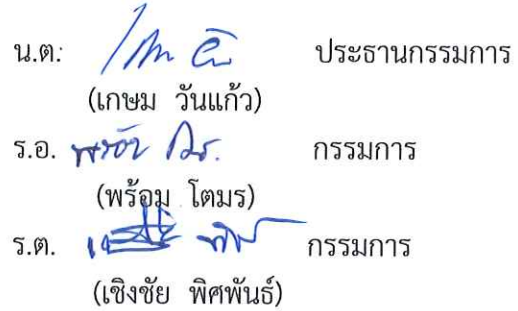 น.ต. ประธานกรรมการ
(เกษม วันแก้ว)
ร.อ. กรรมการ
(พร้อม โตมร)
ร.ต. กรรมการ
(เชิงชัย พิศพันธ์)